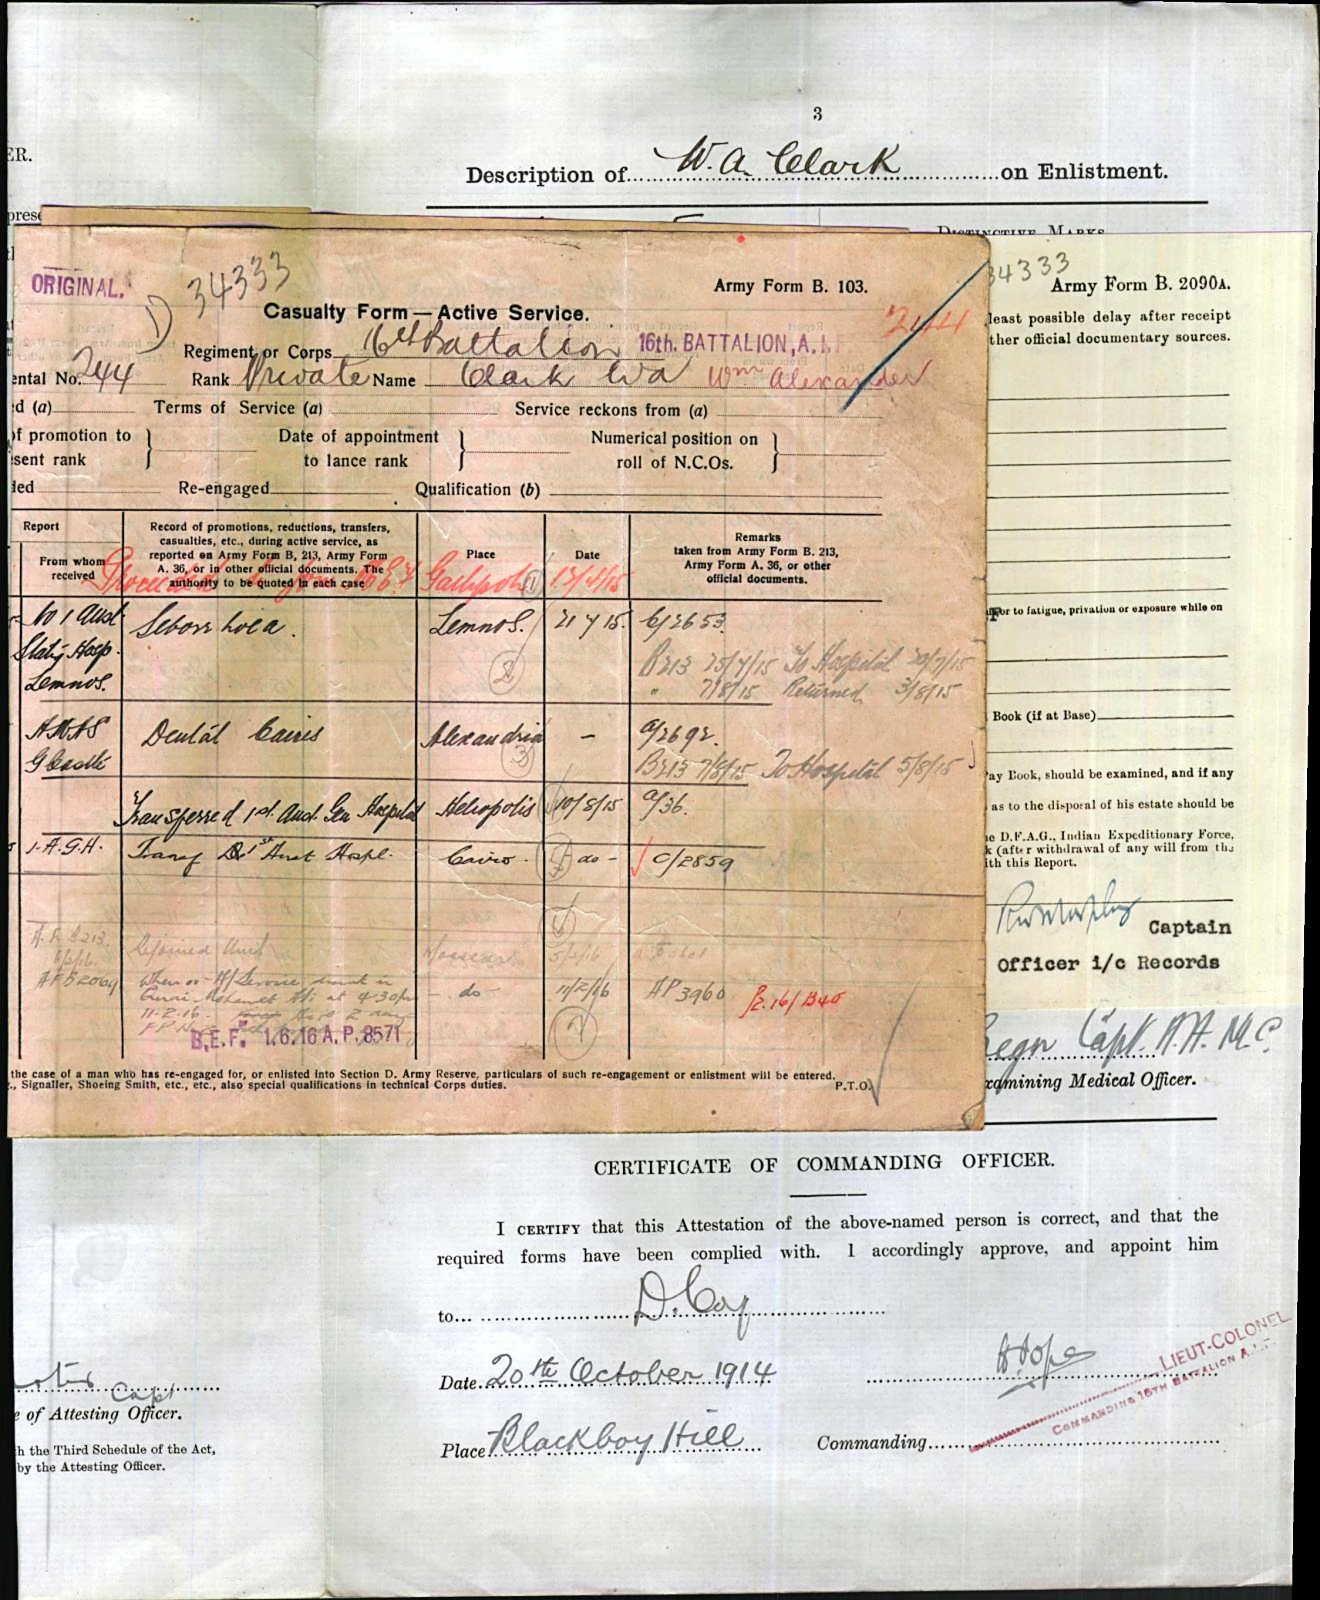 3
ER.
Description of W. A. Clark on Enlistment.
DISTINCTIVE MARKS
ORIGINAL.
D 34333
34333
Army Form B. 103.
Army Form B. 2090A.
Casualty Form — Active Service.
244
least possible delay after receipt
ther official documentary sources.
Regiment or Corps 16th Battalion 16th. BATTALION, A.I.F
ental No. 244 Rank Private Name Clark W A Wm Alexander
ed (a) Terms of Service (a) Service reckons from (a)
of promotion to
sent rank
Date of appointment
to lance rank
Numerical position on
roll of N.C.Os.
ded Re-engaged Qualification (b)
Report
From whom
received
Record of promotions, reductions, transfers,
casualties, etc., during active service, as
reported on Army Form B. 213, Army Form
A. 36, or in other official documents. The
authority to be quoted in each case
Place
Date
Remarks
taken from Army Form B. 213,
Army Form A. 36, or other
official documents.
Gallipoli 1
No 1 Aust Seborrhoea. Lemnos. 21 7 15. C/2653.
Staty Hosp. 2 B213 25/7/15 To Hospital 20/7/15
Lemnos. " 7/8/15 Returned 3/8/15
Dental Caries Alexandria - a/2692.
G Castle 3 B213 7/8/15 To Hospital 5/8/15
Transferred 1st. Aust. Gen Hospital Heliopolis 10/8/15 a/36.
1. A.G.H. Transf 1st Aust Hospl. Cairo. do - C/2859
or to fatigue, privation or exposure while on
Book (if at Base)
Pay Book, should be examined, and if any
as to the disposal of his estate should be
e D.F.A.G., Indian Expeditionary Force,
k (after withdrawal of any will from the
ith this Report.
Captain
Officer i/c Records
Rejoined Unit
- do - 11/2/16 AP 3960
11-2-16.
B.E.F. 1.6.16 A.P. 8571
the case of a man who has re-engaged for, or enlisted into Section D. Army Reserve, particulars of such re-engagement or enlistment will be entered.
, Signaller, Shoeing Smith, etc., etc., also special qualifications in technical Corps duties.
P.T.O.
Capt. A.A.M.C.
xamining Medical Officer.
CERTIFICATE OF COMMANDING OFFICER.
I CERTIFY that this Attestation of the above-named person is correct, and that the
required forms have been complied with. I accordingly approve, and appoint him
to D. Coy
Date 20th October 1914
LIEUT-COLONEL
COMMANDING 16TH BATTALION A.I.F.
Place Blackboy Hill Commanding
Capt
e of Attesting Officer.
h the Third Schedule of the Act,
by the Attesting Officer.